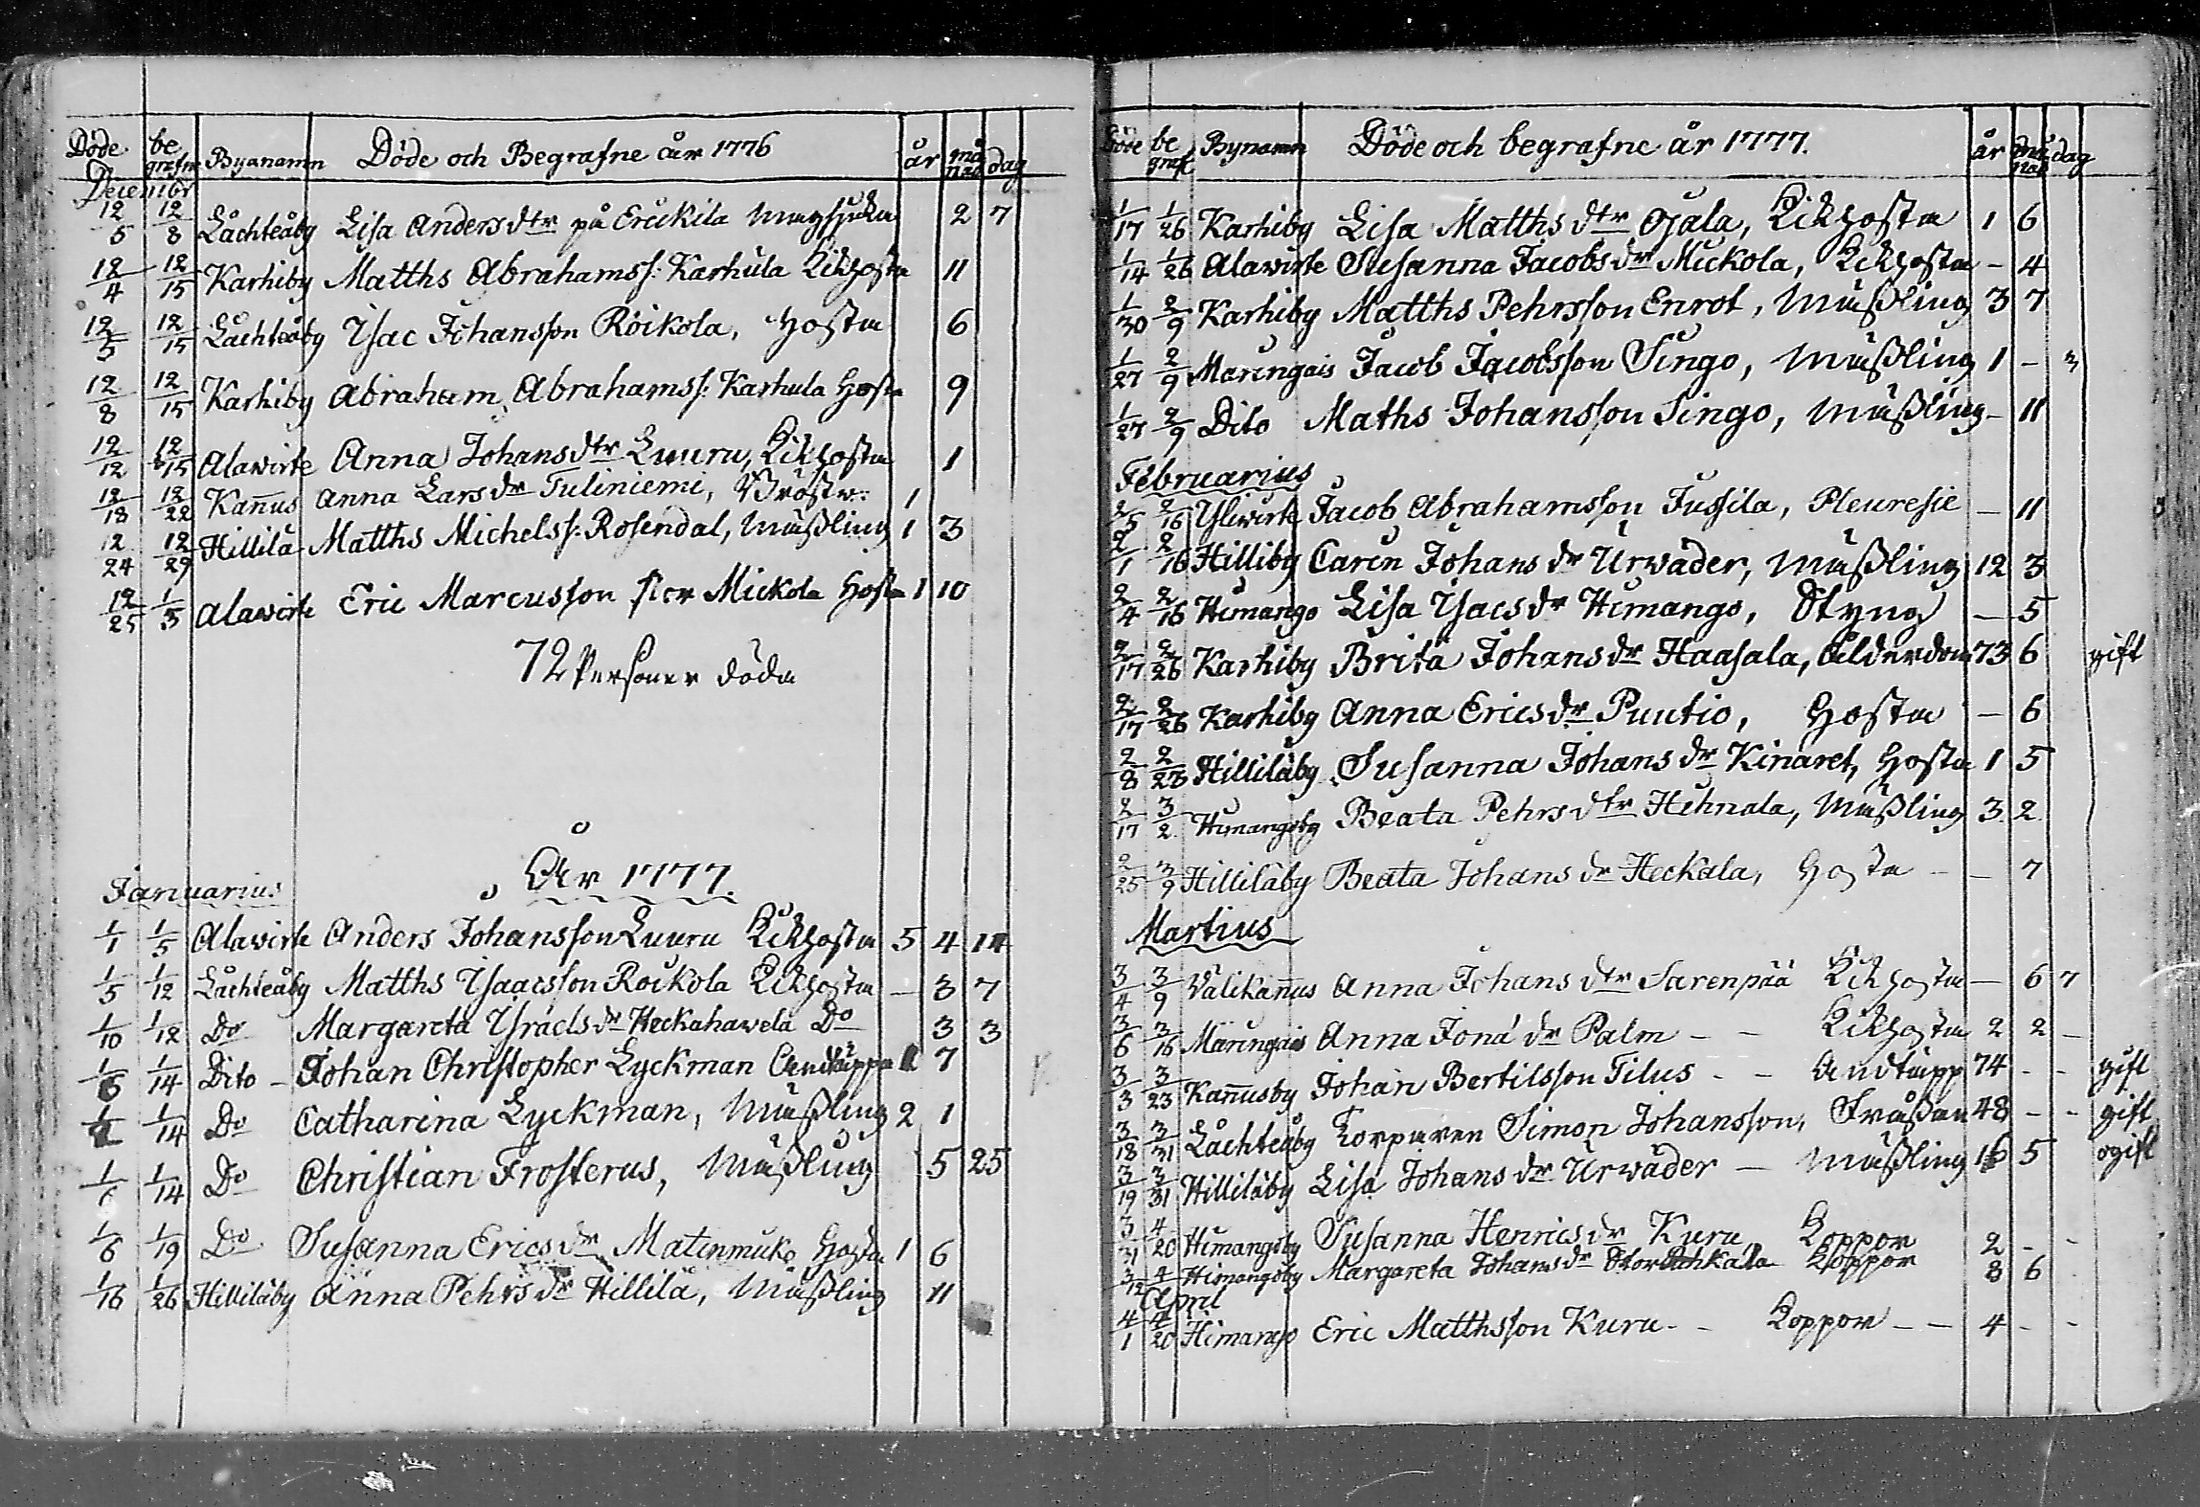 Döde be grafne Byanamn Döde och Begrafne åår 1776 år må nad dag
Decembr
12/5 12/8 Låchteåby Lisa Andersdtr på Erickila Magsjuka 2 7
12/4 12/15 Karhiby Matths Abrahamss: Karhula Kikhosta 11
12/5 12/15 Låchteåby Isac Johansson Röikola, Hosta 6
12/8 12/15 Karhiby Abraham Abrahamss: Karhula Hosta 9
12/12 12/15 Alawirte Anna Johansdtr Luuru, Kikhosta 1
12/18 12/22 Kañus Anna Larsdr Tuliniemi, 1
12/24 12/29 Hillilä Matths Michelss: Rosendal, Mäßling 1 3
12/25 1/5 Alawirte Eric Marcusson stor Mickola Hosta 1 10
72 Personer döda
År 1777.
Januarius
1/1 1/5 Alawirte Anders Johansson Luuru Kikhosta 5 4 14
1/5 1/12 Låchteåby Matths Isaacsson Roikola Kikhosta – 3 7
1/10 1/12 Do Margareta Israelsdr Heckahawela Do 3 3
1/6 1/14 Dito – Johan Christopher Lyckman Andtäppa 7
1/14 Do Catharina Lyckman, Mäßling 2 1
1/6 1/14 Do Christian Frosterus, Mäßling 5 25
1/6 1/19 Do Susanna Ericsdr Matinmuko Hosta 1 6
1/16 1/26 Hilliläby Anna Pehrsdr Hillilä, Mäßling 11
Döde be graf Bynamn Döde och begrafne år 1777. år må nad dag
1/17 1/26 Karhiby Lisa Matthsdtr Ojala, Kikhosta 1 6
1/14 1/26 Alawirte Susanna Jacobsdr Mickola, Kikhosta – 4
1/30 2/9 Karhiby Matths Pehrsson Enrot, Mäßling 3 7
1/27 2/9 Maringais Jacob Jacobsson Singo, Mäßling 1 – 3
1/27 2/9 Dito Maths Johansson Singo, Mäßling – 11
Februarius
2/5 2/16 Yliwirte Jacob Abrahamsson Jussila, Pleuresie – 11
2/1 2/16 Hilliby Carin Johansdr Urwäder, Mäßling 12 3
2/4 2/16 Himango Lisa Isacsdr Himango, Styng – 5
2/17 2/26 Karhiby Brita Johansdr Haasala, Ålderdom 73 6 gift
2/17 2/26 Karhiby Anna Ericsdr Puutio, Hosta – 6
2/8 2/23 Hilliläby Susanna Johansdr Kinaret, Hosta 1 5
2/17 3/2 Himangoby Beata Pehrsdtr Hihnala, Mäßling 3 2
2/25 3/9 Hilliläby Beata Johansdr Heckala, Hosta – – 7
Martius
3/4 3/9 Välikañus Anna Johansdtr Sarenpää Kikhosta – 6 7
3/6 3/16 Maringais Anna Jonædr Palm – – Kikhosta 2 2 –
3/3 3/23 Kañusby Johan Bertilsson Tilus – – Andtäpp 74 – – gift
3/18 3/31 Låchteåby Korpuren Simon Johansson, 48 – – gift
3/19 3/31 Hilliläby Lisa Johansdr Urwäder – Mäßling 16 5 ogift
3/31 4/20 Himangoby Susanna Henricsdr Kuru Koppor 2 – –
Himangoby Margareta Johansdr Koppor 8 6
April
4/1 4/20 Himango Eric Matthsson Kuru – – Koppor – – 4 – –